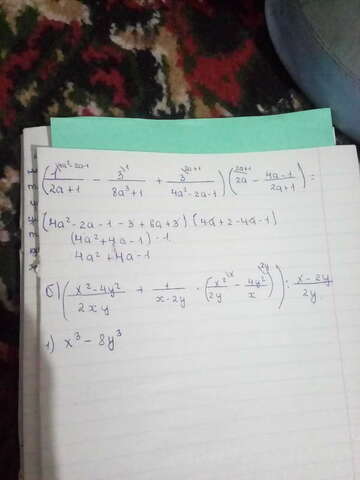 (1^{4a²-2a-1}/2a+1 - 3^{1}/8a³+1 + 3^{2a+1}/4a²-2a-1)(2a^{2a+1} - 4a-1/2a+1)=
(4a²-2a-1-3+6a+3)(4a+2-4a-1)
(4a²+4a-1)·1
4a²+4a-1
б)(x²-4y²/2xy + 1/x-2y · (x²^{x}/2y - 4y²^{2y}/x)) : x-2y/2y
1) x³-8y³